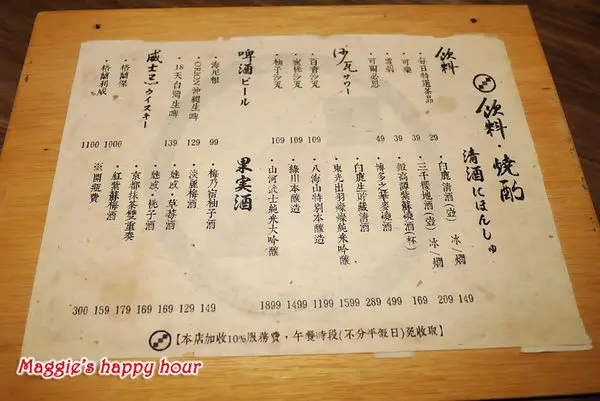 飲料・燒酌
清酒にほんしゅ
飲料
・每日特選茶品 29
・可樂 39
・雪碧 39
・可爾必思 49
沙瓦サワー
・百香沙瓦 109
・蜜桃沙瓦 109
・柚子沙瓦 109
啤酒ビール
・海尼根 99
・ORION沖繩生啤 129
・18天台灣生啤 139
威士忌ウイスキー
・格蘭堡 1000
・格蘭利威 1100
・白鹿清酒(壺) 冰/燗 149
・三千櫻地酒(壺) 冰/燗 209
高譚紫蘇燒酒(杯) 169
・博多之華麥燒酒 499
・白鹿生貯藏清酒 289
・東光出羽燦燦純米吟釀 1599
・八海山特別本釀造 1199
・綠川本釀造 1499
・山河武士純米大吟釀 1899
果実酒
・梅乃宿柚子酒 149
・淡麗梅酒 129
・魅惑・草莓酒 169
・魅惑・桃子酒 169
・京都抹茶雙重奏 179
・紅紫蘇梅酒 159
※開瓶費 300
【本店加收10%服務費,午餐時段(不分平假日)免收取】
Maggie's happy hour